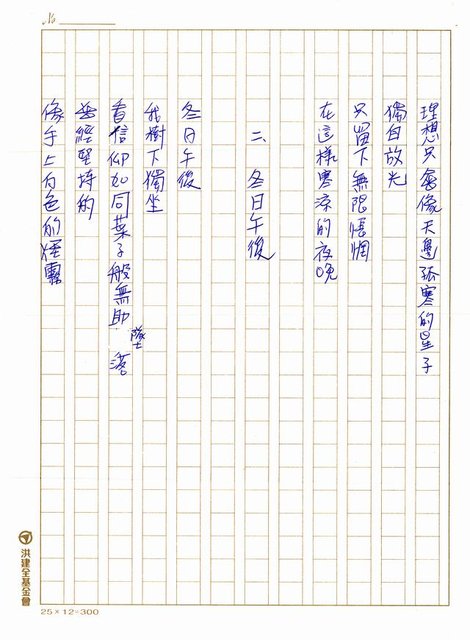 No
理想只會像天邊孤寒的星子
獨自放光
只留下無限悵惘
在這樣寒涼的夜晚
二、冬日午後
冬日午後
我樹下獨坐
看信仰如同葉子般無助墜落
曾經堅持的
像手上白色的煙霧
洪建全基金會
25×12=300